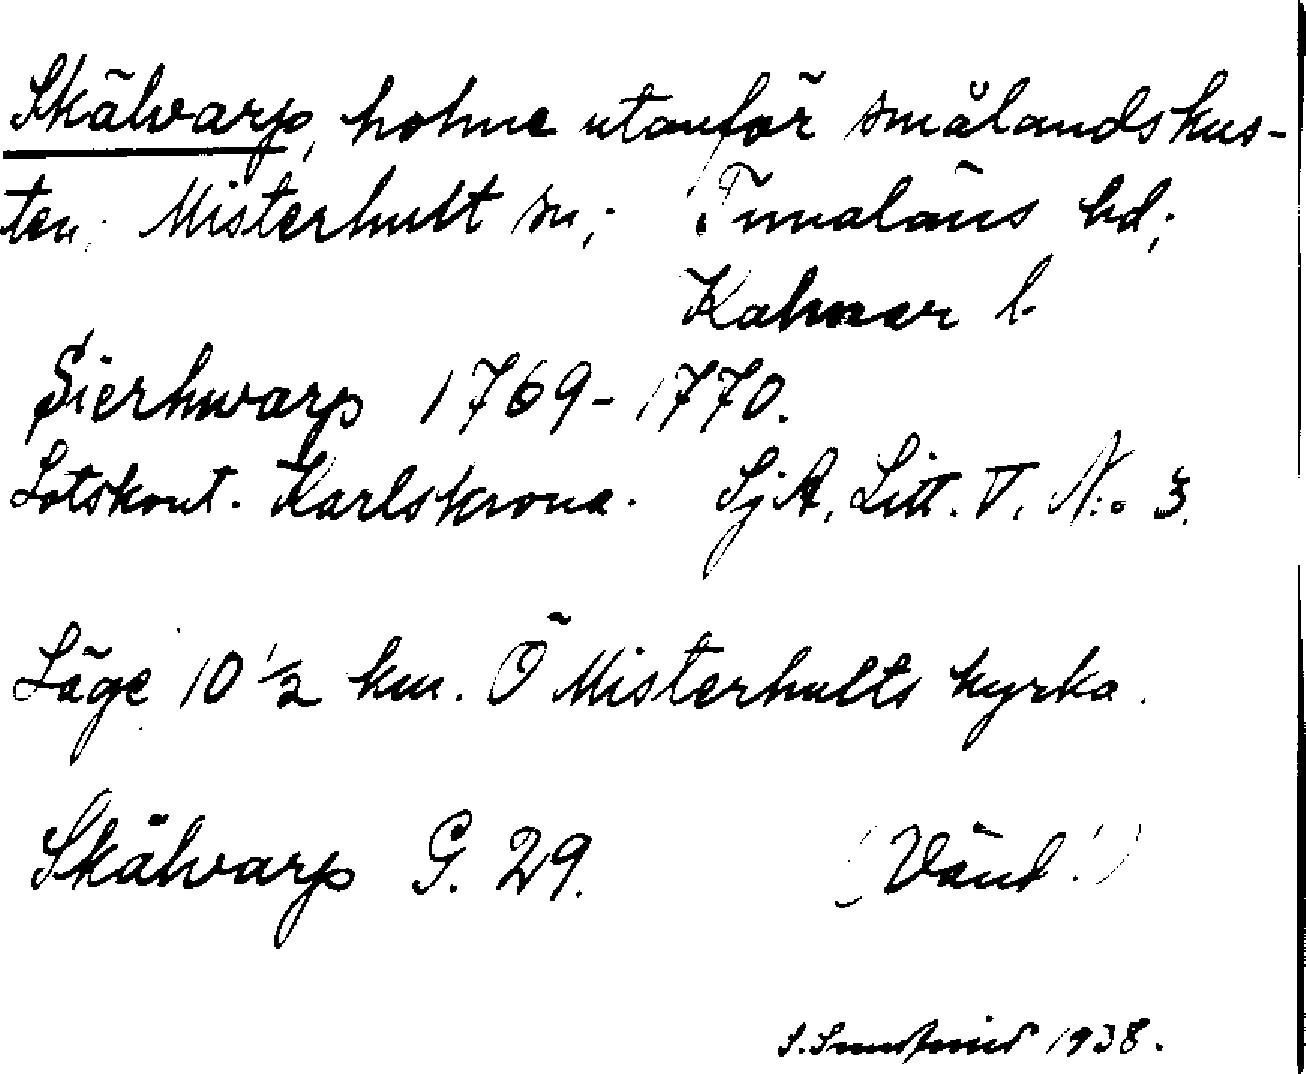 Skälvarp, holme utanför smålandskus-
ten; Misterhult sn; Tunaläns hd;
Kalmar l.
Sierhwarp 1769-1770.
Lotskont. Karlskrona. SjA, Litt. V. N:o 3.
Läge 10 1/2 km. Ö Misterhults kyrka.
Skälvarp G. 29. (Vänd!)
1938.